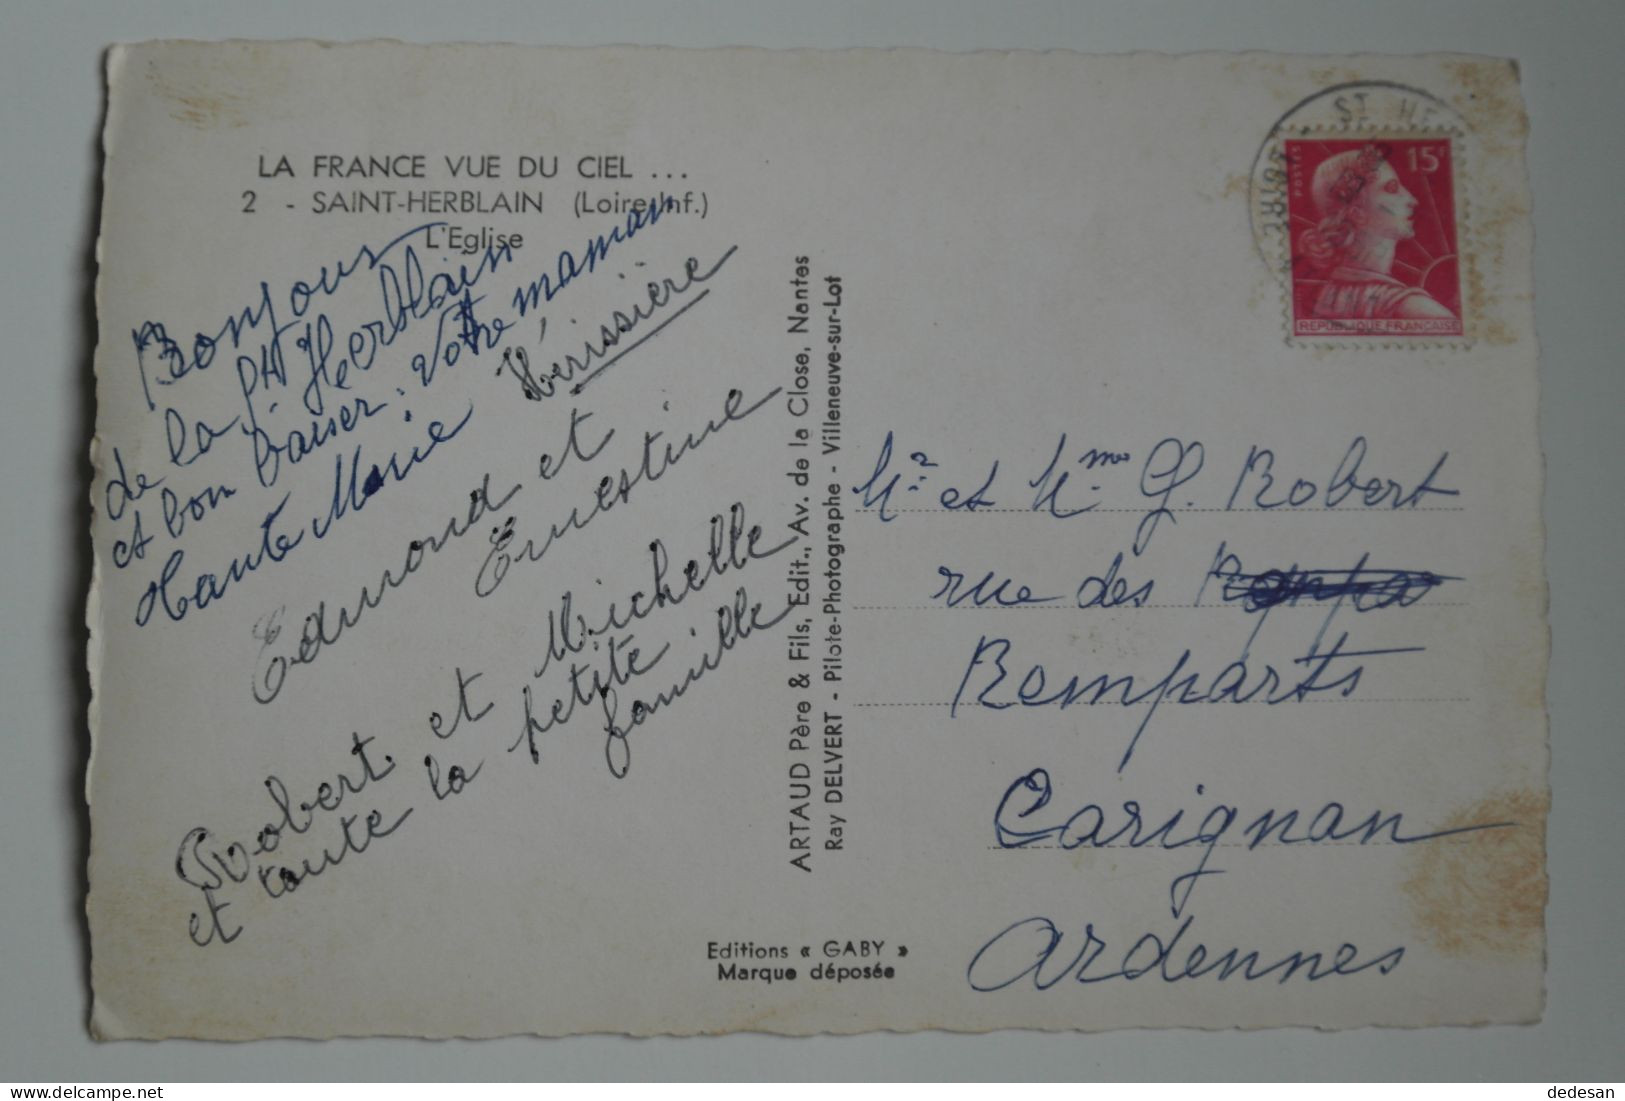 LA FRANCE VUE DU CIEL ...
2 - SAINT-HERBLAIN (Loire-Inf.)
L'Eglise
Bonjour
de la St Herblain
et bon baiser : Votre maman
Haute Marie Hérissière
Edmond et
Ernestine
Robert et Michelle
et toute la petite
famille
ARTAUD Père & Fils, Edit., Av. de la Close, Nantes
Ray DELVERT - Pilote-Photographe - Villeneuve-sur-Lot
Editions « GABY »
Marque déposée
ST HE
POSTES
15F
REPUBLIQUE FRANÇAISE
Mr et Mme G. Robert
rue des
Remparts
Carignan
Ardennes
dedesan